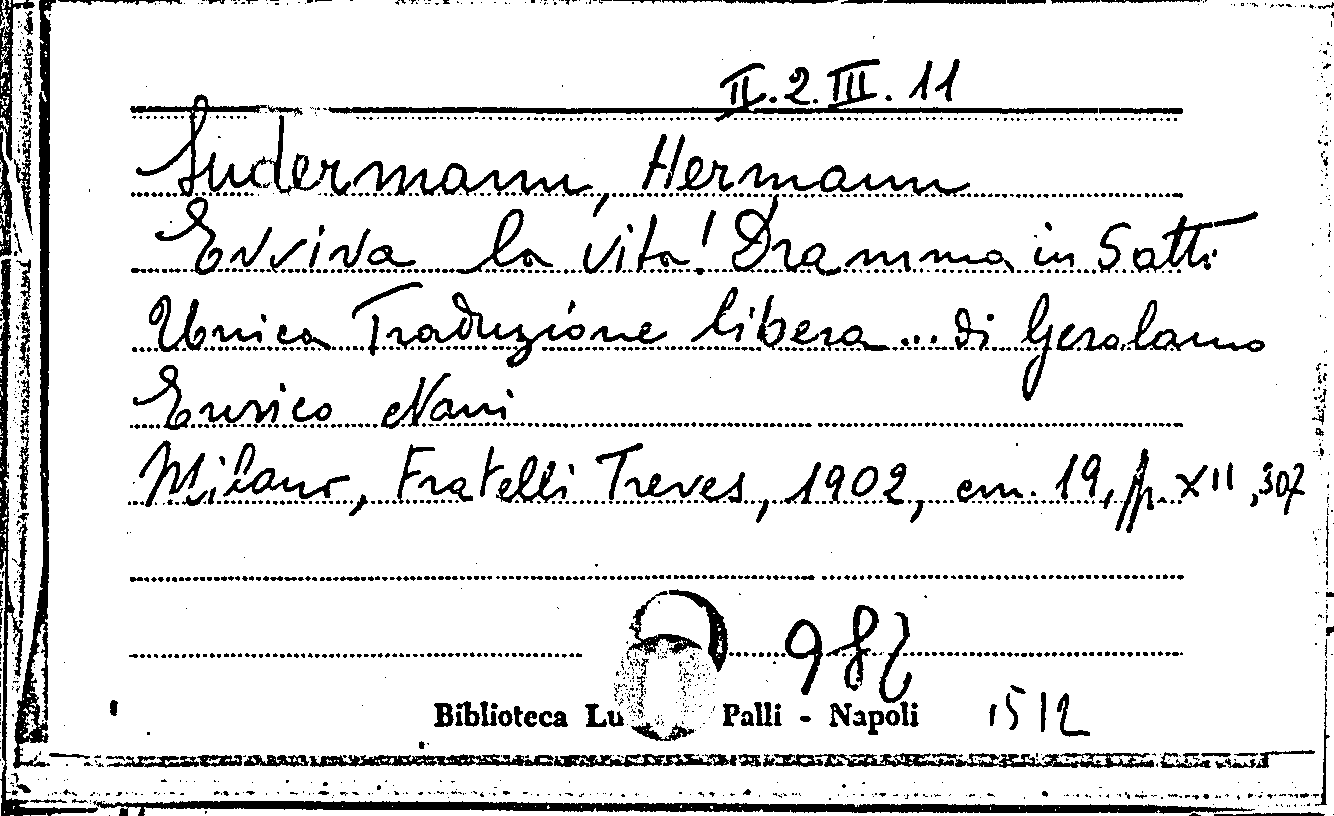 II.2.III.11
Sudermann, Hermann
Evviva la vita! Dramma in 5 atti
Unica Traduzione libera ... di Gerolamo
Enrico Nani
Milano, Fratelli Treves, 1902, cm. 19, pp. XII, 307
987
Biblioteca Lu Palli - Napoli
1512